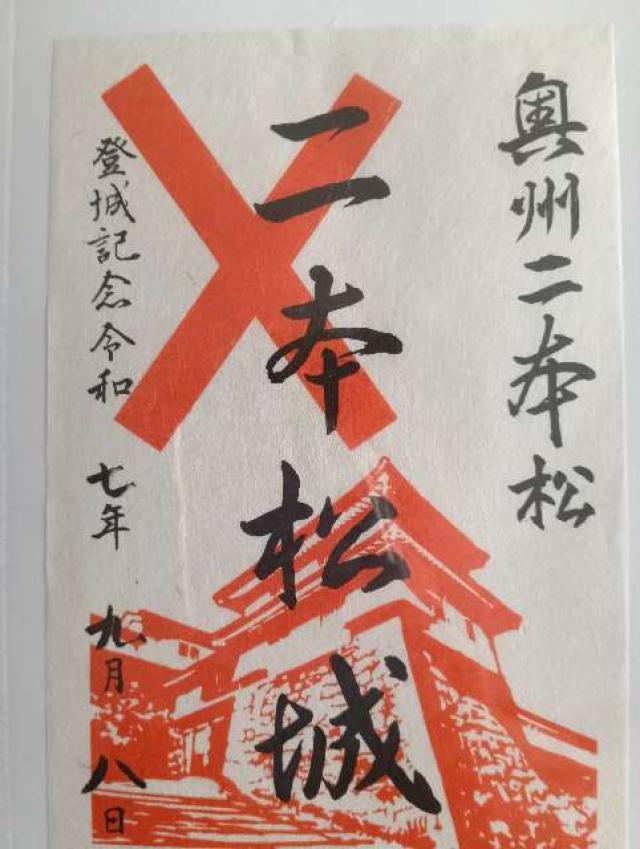 奥州二本松
二本松城
登城記念令和七年九月八日